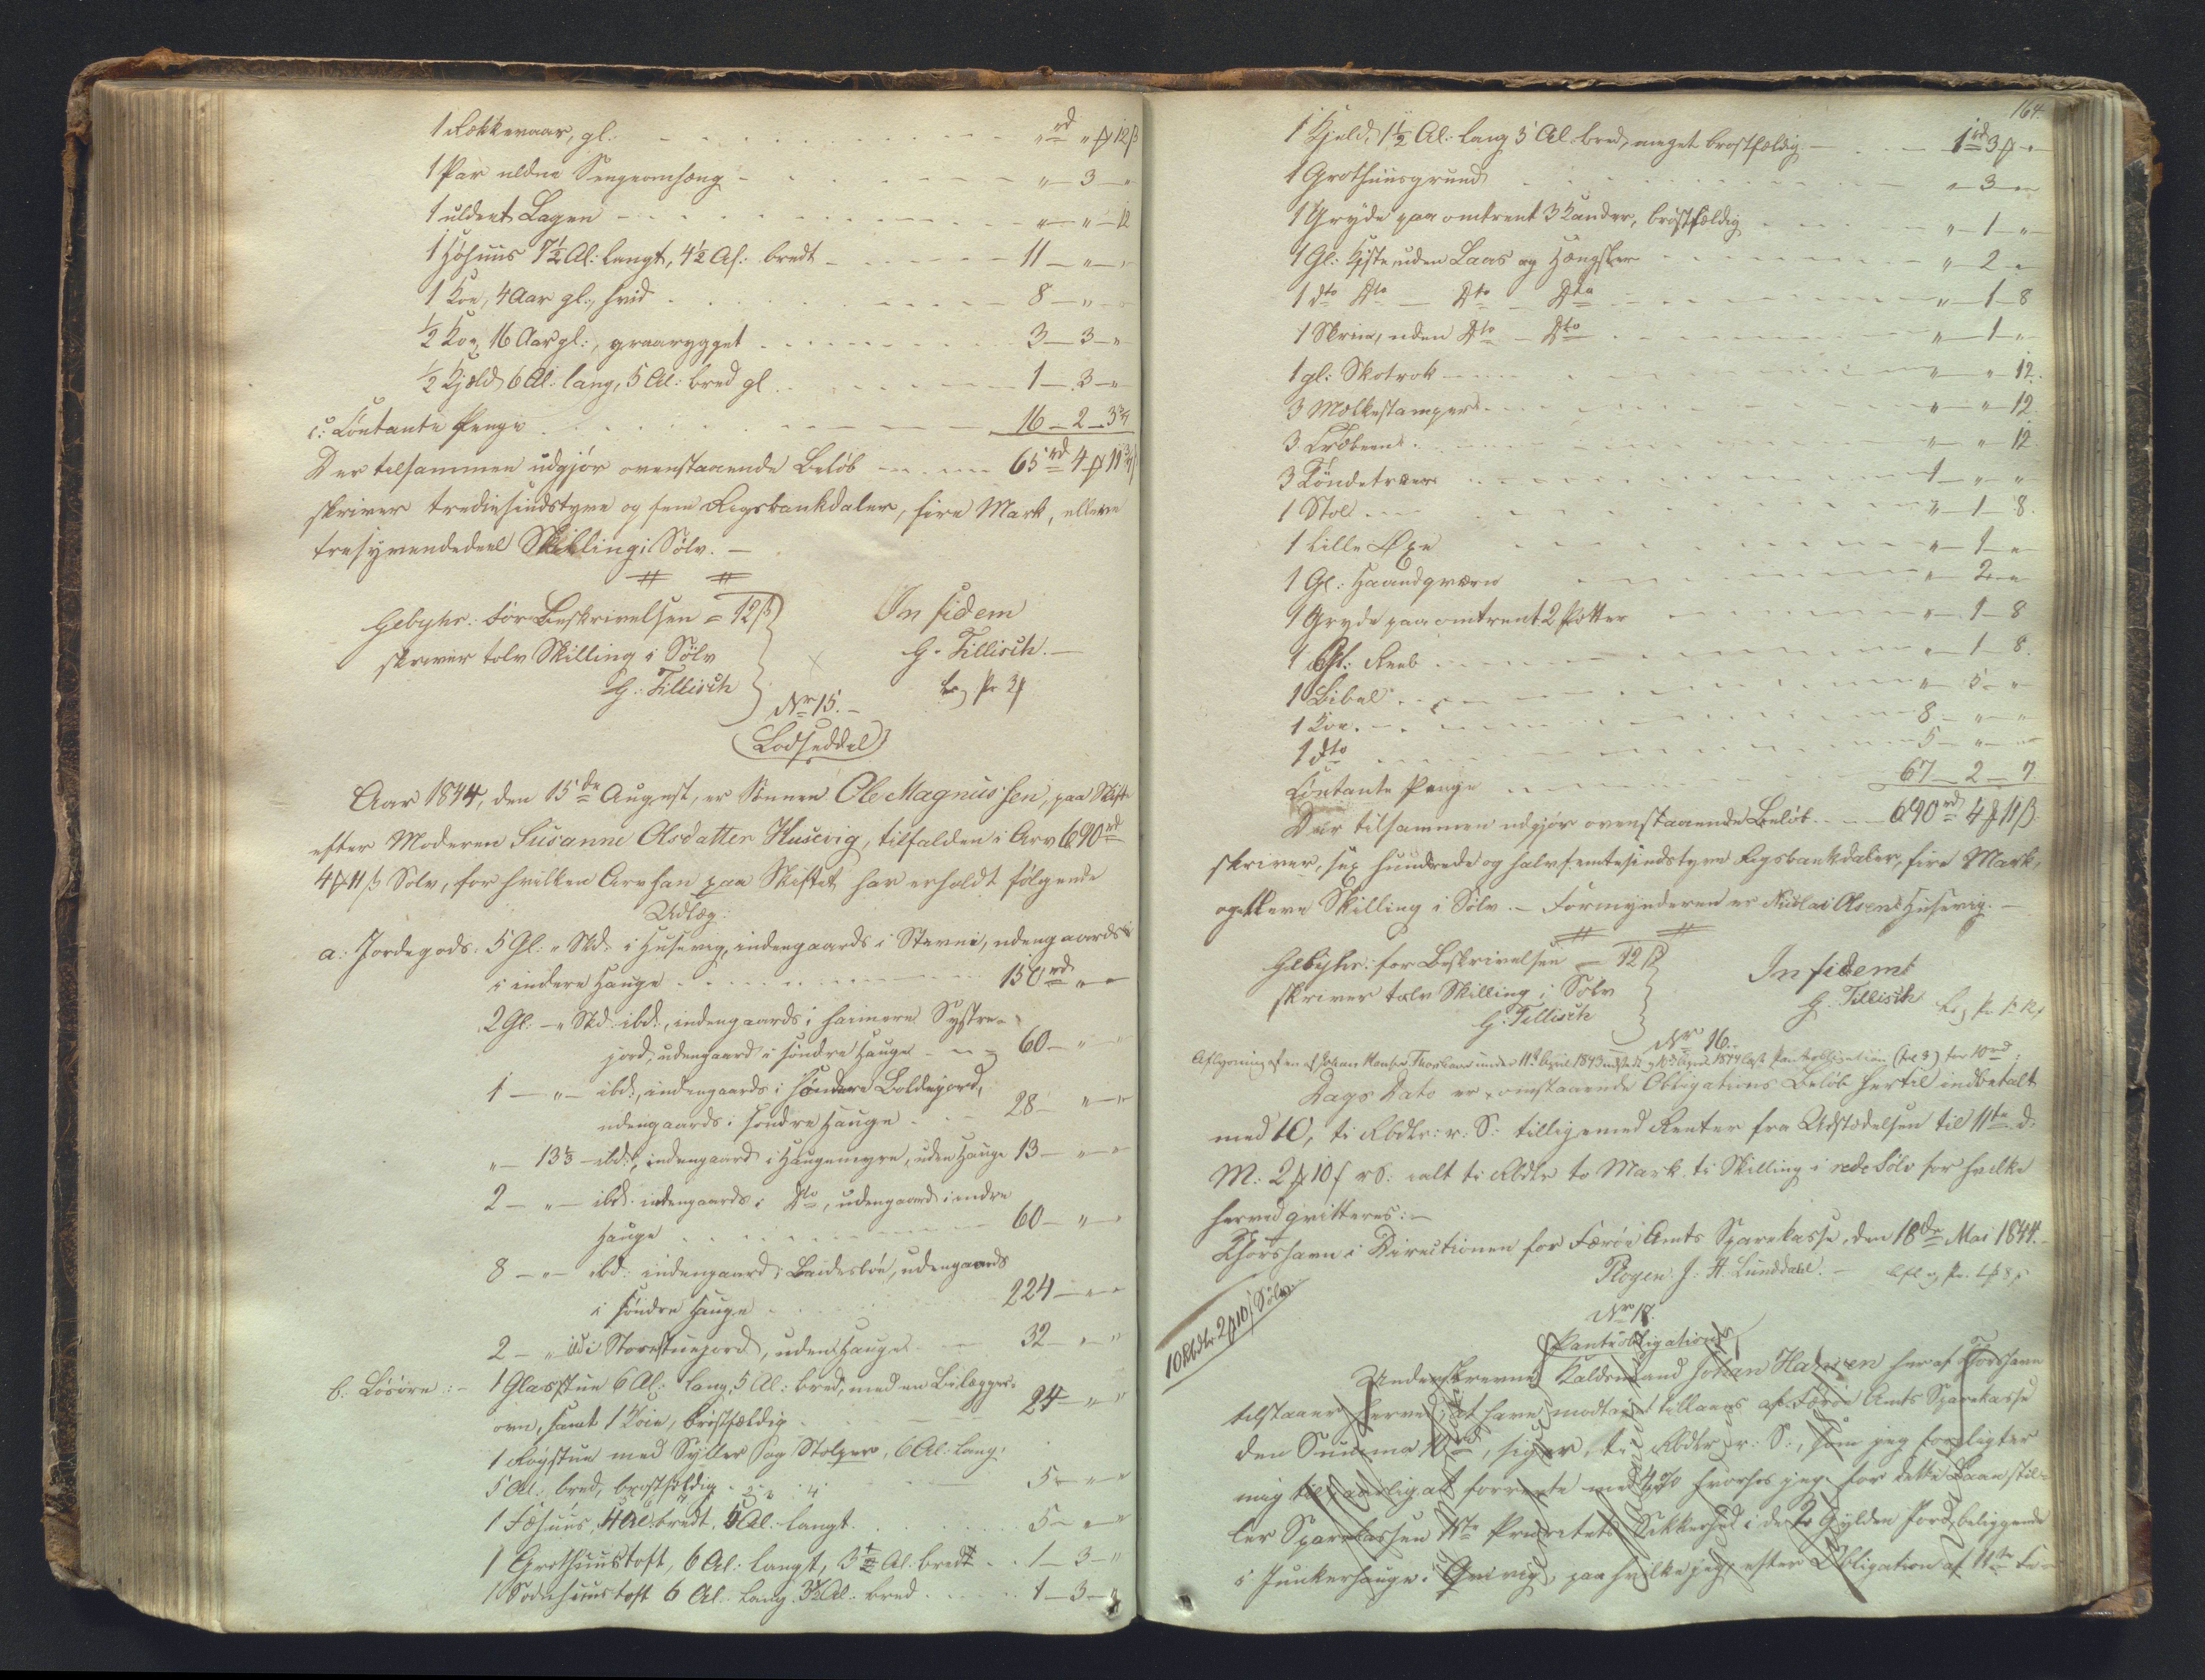 1 Dækkenaar, gl: „rd „ ₻ 12 ß
1 Par uldne Sengeomhæng „ – 3 – „
1 uldent Lagen „ – „ – 12
1 Høhuus 7½ Al: langt, 4½ Al: bredt 11 – „ – „
1 Koe, 4 Aar gl:, hvid 8 – „ – „
½ Ko, 16 Aar gl:, graarygget 3 – 3 – „
½ Kjeld 6 Al: lang, 5 Al: bred gl 1 – 3 – „
c: Contante Penge 16 – 2 – 3¾
Der tilsammen udgjør ovenstaaende Beløb 65rd 4 ₻ 11¾ ß
skriver trediesindstyve og fem Rigsbankdaler, fire Mark, elleve
trefjerendedeel Skilling i Sølv. –
Gebyhr: for Beskrivelsen = 12 ß
skriver tolv Skilling i Sølv
G: Tillisch
In fidem
G. Tillisch. –
Nr 15. –
Lodseddel
Aar 1844, den 15de August, er Sønnen Ole Magnussen, paa Skifte
efter Moderen Susanne Olsdatter Husevig, tilfalden i Arv 690rd
4 ₻ 11 ß Sølv, for hvilken Arv han paa Skiftet har erholdt følgende
Udlæg:
a: Jordegods. 5 Gl: „ Skd: i Husevig, indengaards i Stavni, udengaards
i indere Hauge 150rd „ „
2 Gl. – „ Skd: ibd:, indengaards i haimere Systre-
jord, udengaard i søndre Hauge 60 – „ –
1 – „ – ibd:, indengaards i søndere Boldejord,
udengaards i søndre Hauge 28 – „ – „
„ – 13⅓ – ibd:, indengaard i Haugemyre, uden Hauge 13 – „ – „
2 – „ – ibd: indengaards i Dto, udengaard i indre
Hauge 60 – „ – „
8 – „ – ibd: indengaard i Baidesbøe, udengaards
i søndre Hauge 224 – „ – „
2 – „ ibd i Storestuejord, uden Hauge 32 – „ – „
b: Løsøre: – 1 Glasstue 6 Al: lang, 5 Al: bred, med en Bilægger-
ovn, samt 1 Køie, brøstfældig 24 – „ – „
1 Røgstue med Syller og Stolper, 6 Al: lang,
5 Al: bred, brøstfældig 5 – „ – „
1 Fæhuus, 4 Al: bredt, 5 Al: langt 5 – „ – „
1 Grothuustoft, 6 Al: langt, 3½ Al: bredt 1 – 3 – „
1 Sodnhuustoft 6 Al: lang 3½ Al: bred 1 – 3 – „
164.
1 Kjeld, 1½ Al: lang 3 Al: bred, meget brøstfældig. – 1rd 3 ₻ „
1 Grothuusgrund „ – 3 – „
1 Gryde paa omtrent 3 Kander, brøstfældig „ – 1 – „
1 Gl: Kiste uden Laas og Hængsler „ – 2 – „
1 dto Dto – Dto – Dto „ – 1 – 8
1 Skrin, uden Dto – Dto „ – 1 – „
1 gl: Skotrok „ – „ – 12.
3 Mælkestamper „ – „ – 12.
3 Tröbeen „ – „ 12
3 Tøndetræer 1 – „ – „
1 Stol „ – 1 – 8.
1 lille Øxe „ – 1 – „
1 Gl: Haandqværn „ – 2 – „
1 Gryde paa omtrent 2 Potter „ – 1 – 8
1 Gl: Reeb „ – 1 – 8.
1 Bibel „ – 5 – „
1 Koe 8 – „ – „
1 dto 5 – „ – „
Contante Penge 67 – 2 – 7.
Der tilsammen udgjør ovenstaaende Beløb 690rd 4 ₻ 11 ß.
skriver, sex hundrede og halvfemtesindstyve Rigsbankdaler, fire Mark,
og elleve Skilling i Sølv. – Formynderen er Nicolai Olsen Husevig. –
Gebyhr: for Beskrivelsen = 12 ß
skriver tolv Skilling i Sølv
G: Tillisch
In fidem
G. Tillisch
Nr 16. –
Aflysning af en af Johan Hansen Thorshavn under 11te April 1843 udstedt Pantobligation for 10rd:
Dags Dato er omstaaende Obligations Beløb hertil indbetalt
med 10, ti Rbdlr: r: S: tilligemed Renter fra Udstædelsen til 11te d:
M: 2 ₻ 10 ß r S: ialt ti Rbdlr to Mark ti Skilling i rede Sølv for hvilke
herved qvitteres: –
Thorshavn i Directionen for Færøe Amts Sparekasse, den 18de Mai 1844. –
Pløyen J: H. Lunddahl. –
10 Rbdlr 2 ₻ 10 ß Sølv
Nr 17.
Pantobligation
Underskrevne Kaldsmand Johan Hansen her af Thorshavn
tilstaaer herved, at have modtaget tillaans af Færøe Amts Sparekasse
den Summa 10rd, siger, ti Rbdlr r: S:, som jeg forpligter
mig til, aarlig at forrente med 4% hvorhos jeg for dette Laan stil-
ler Sparekassen 1ste Prioritets Sikkerhed i de to Gylden Jord, beliggende
i Junkerhauge i Qvivig, paa hvilke jeg, efter Obligation af 11te